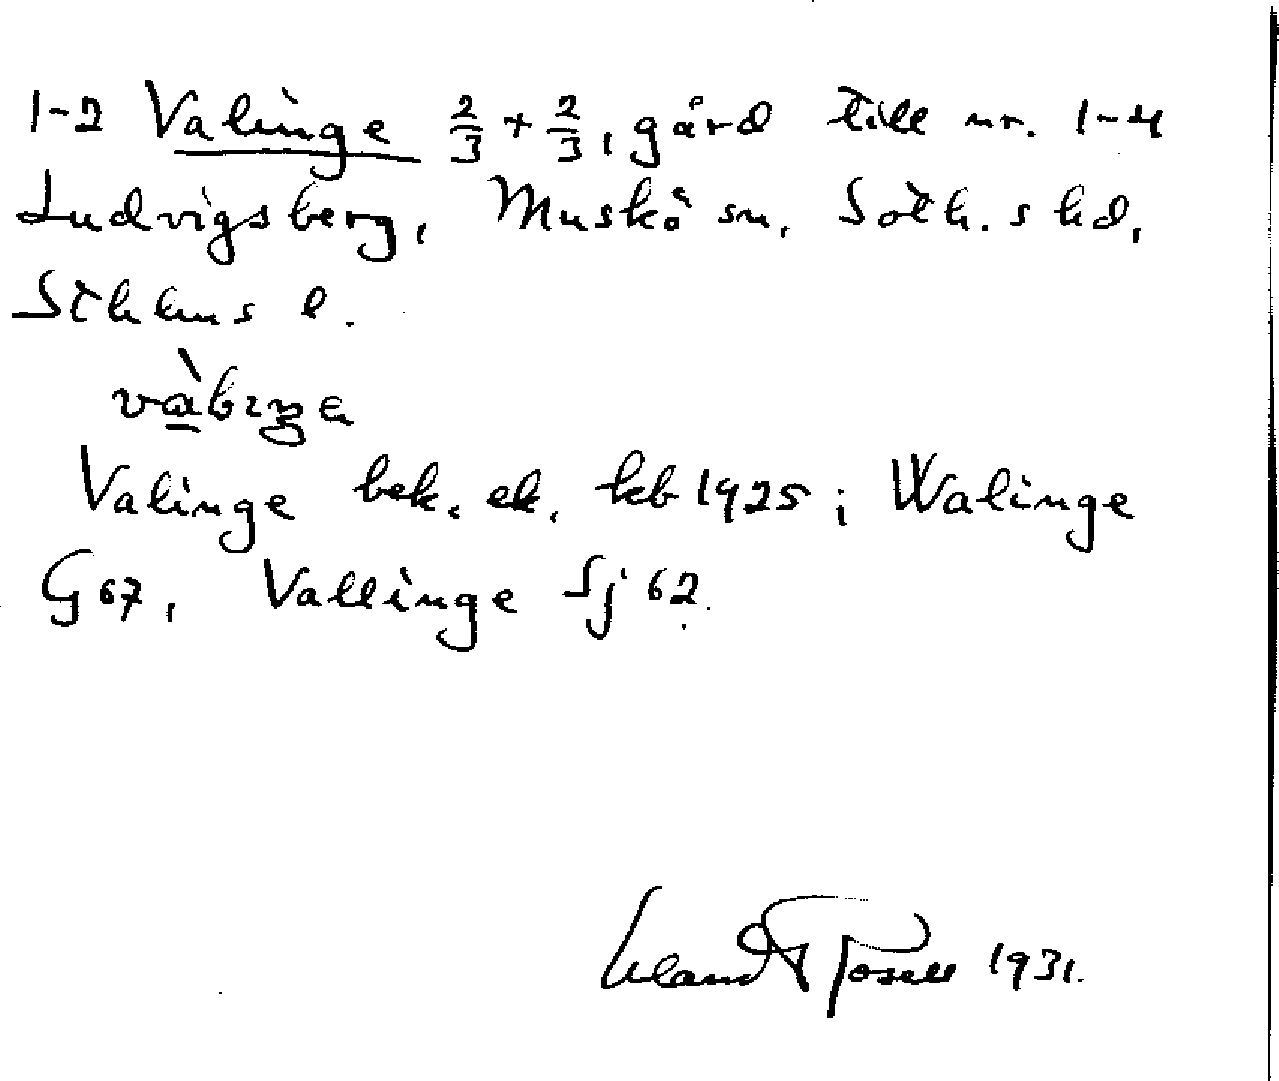 1-2 Valinge 2/3 + 2/3, gård till nr. 1-4
Ludvigsberg, Muskö sn, Soth.s hd,
Sthlms l.
Valinge bek. ek. kb 1925; Walinge
G 67, Vallinge Sj 62.
Tosell 1931.